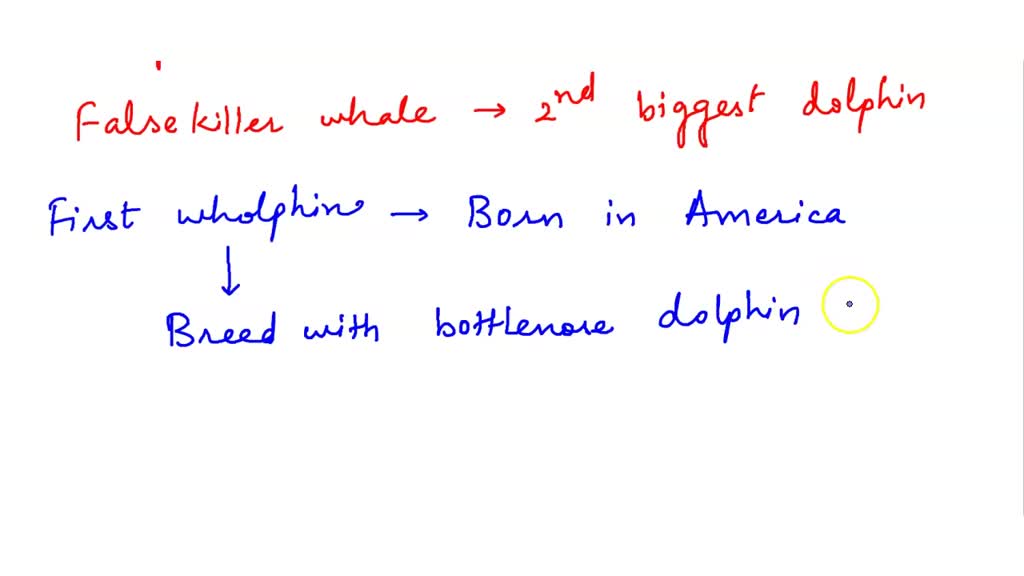 False killer whale → 2nd biggest dolphin
First wholphin → Born in America
↓
Breed with bottlenose dolphin